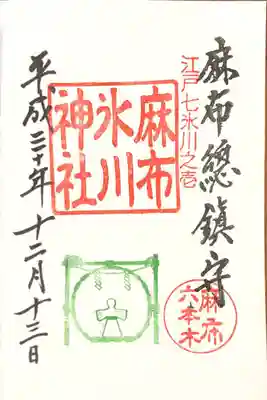 麻布總鎮守
江戸七氷川之壱
麻布
氷川
神社
麻布
六本木
平成三十年十二月十三日